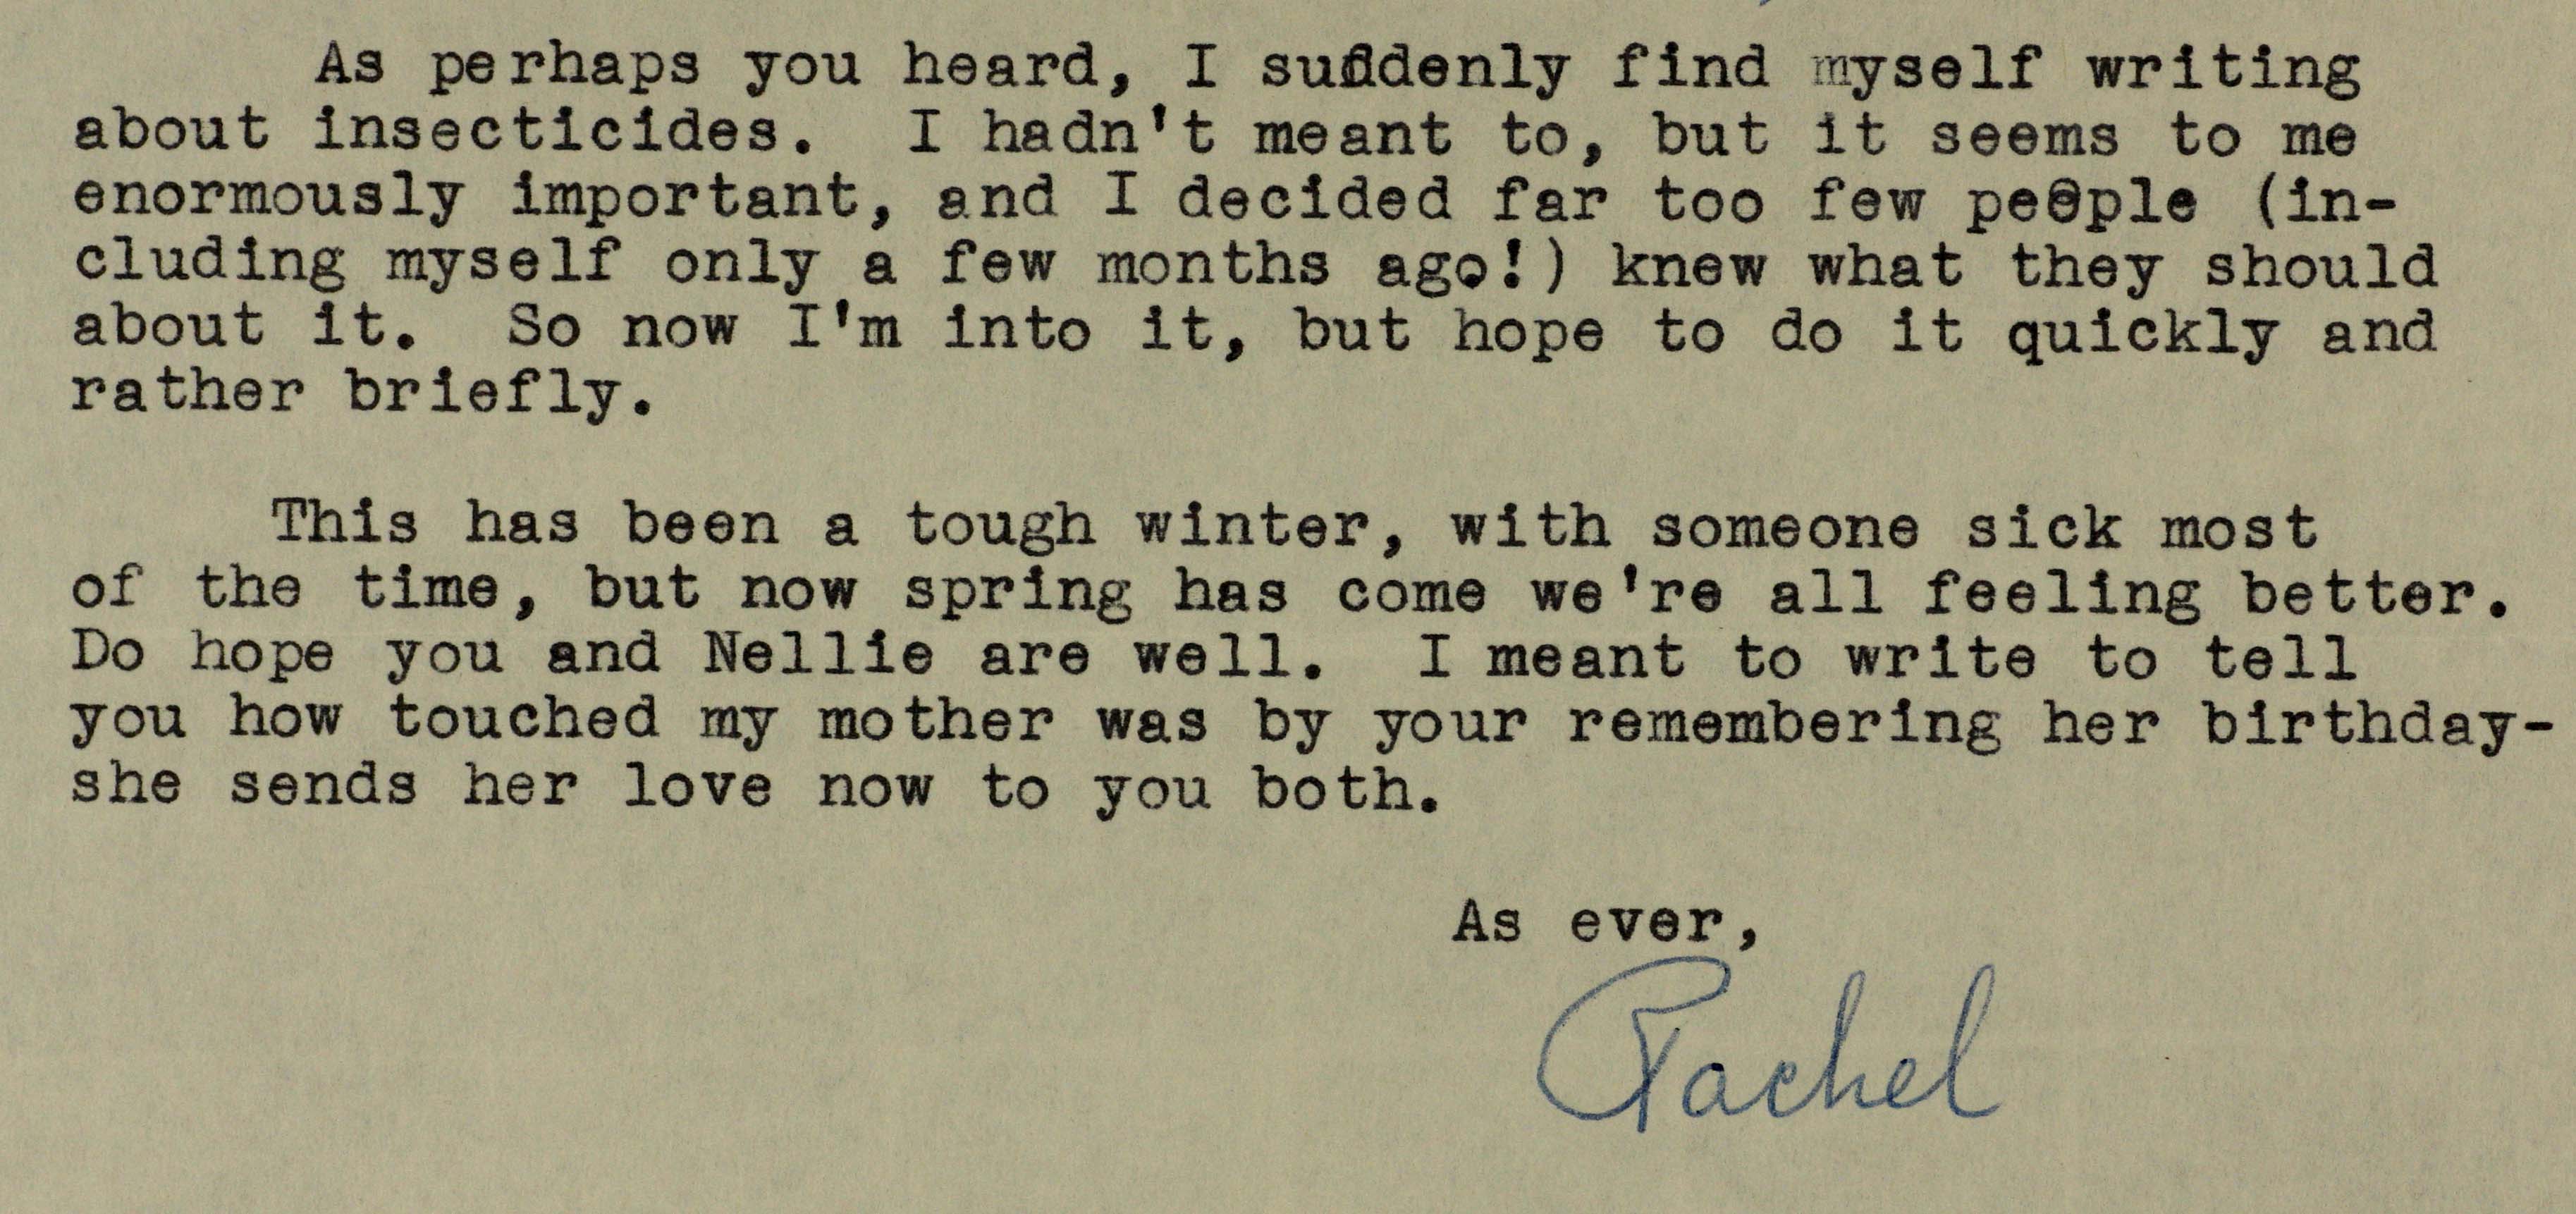 As perhaps you heard, I suddenly find myself writing
about insecticides. I hadn't meant to, but it seems to me
enormously important, and I decided far too few people (in-
cluding myself only a few months ago!) knew what they should
about it. So now I'm into it, but hope to do it quickly and
rather briefly.
This has been a tough winter, with someone sick most
of the time, but now spring has come we're all feeling better.
Do hope you and Nellie are well. I meant to write to tell
you how touched my mother was by your remembering her birthday-
she sends her love now to you both.
As ever,
Rachel